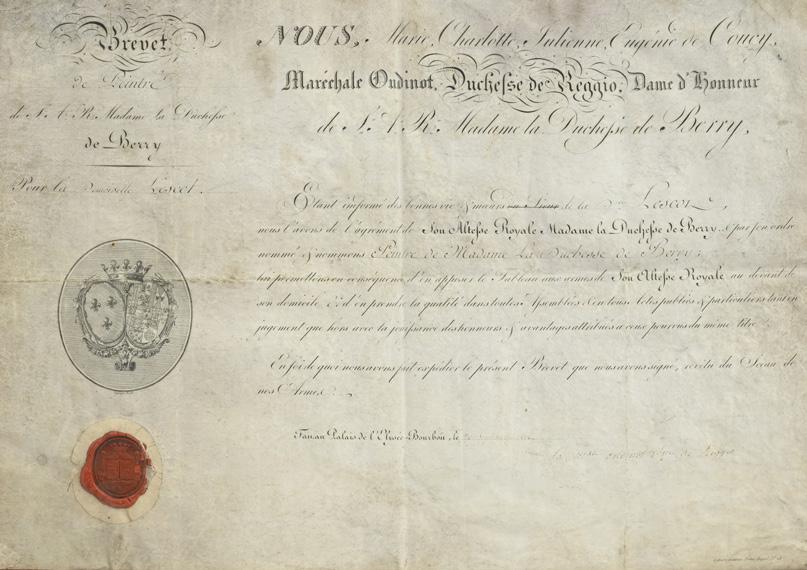 Brevet
de Peintre
de S. A. R. Madame la Duchesse
de Berry
Pour la Demoiselle Lescot.
NOUS, Marie, Charlotte, Julienne, Eugénie de Coucy,
Maréchale Oudinot, Duchesse de Reggio, Dame d'Honneur
de S. A. R. Madame la Duchesse de Berry,
Etant informé des bonnes vie & mœurs de la Dlle Lescot,
nous l'avons de l'agrément de Son Altesse Royale Madame la Duchesse de Berry, & par son ordre
nommé & nommons Peintre de Madame La Duchesse de Berry;
lui permettons en conséquence d'en apposer le Tableau aux armes de Son Altesse Royale au devant de
son domicile, & d'en prendre la qualité dans toutes Assemblées, En tous Actes publics & particuliers tant en
jugement que hors avec la jouissance des honneurs & avantages attribués à ceux pourvus du même titre.
En foi de quoi nous avons fait expédier le présent Brevet que nous avons signé, revêtu du Sceau de
nos Armes.
Fait au Palais de l'Elysée-Bourbon, le
la oudinot de Reggio